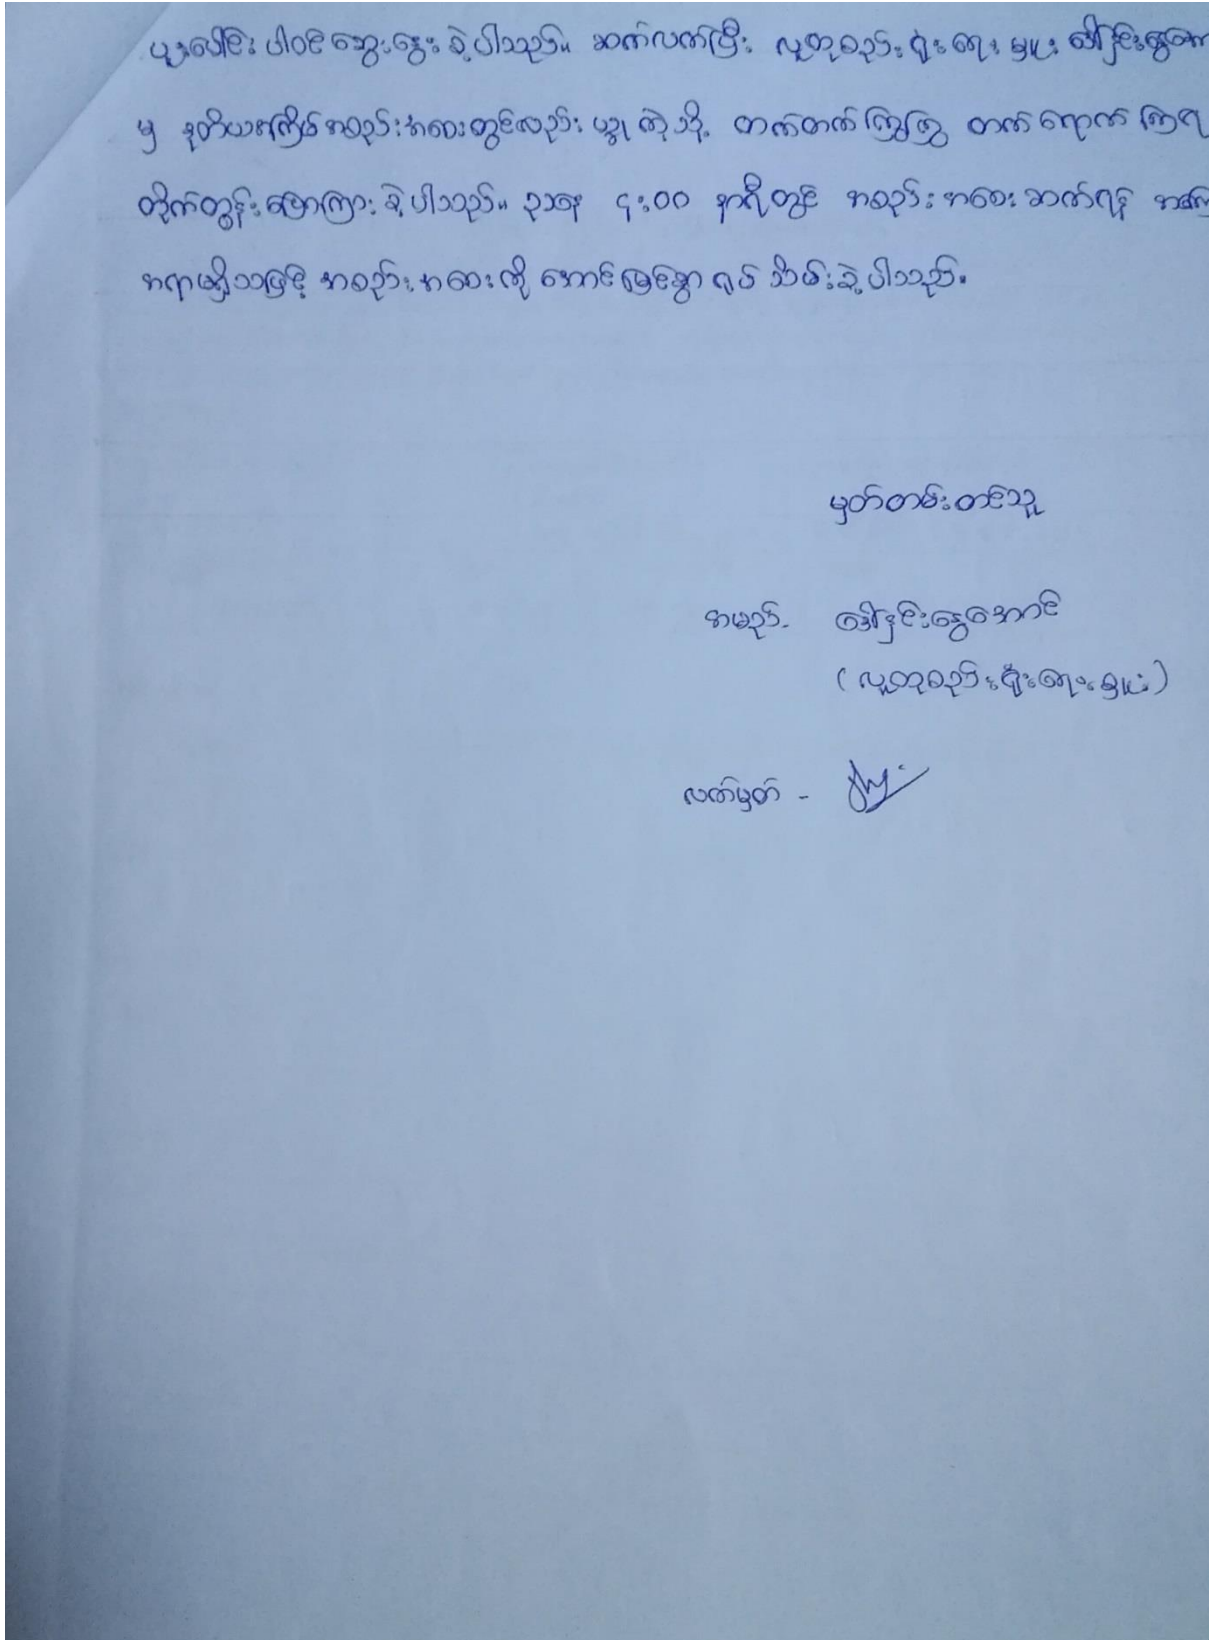 ပူးပေါင်း ပါဝင် ဆွေးနွေး ခဲ့ပါသည်။ ဆက်လက်ပြီး လူထုစည်းရုံးရေးမှူး ဒေါ်နှင်းနွေအောင်
မှ ဒုတိယအကြိမ် အစည်းအဝေးတွင်လည်း ယခုကဲ့သို့ တက်တက်ကြွကြွ တက်ရောက်ကြရန်
တိုက်တွန်း ပြောကြား ခဲ့ပါသည်။ ညနေ ၄:၀၀ နာရီတွင် အစည်းအဝေး ဆက်ရန်
အရာမရှိသဖြင့် အစည်းအဝေးကို အောင်မြင်စွာ ရုပ်သိမ်းခဲ့ပါသည်။
မှတ်တမ်းတင်သူ
အမည်- ဒေါ်နှင်းနွေအောင်
(လူထုစည်းရုံးရေးမှူး)
လက်မှတ် -